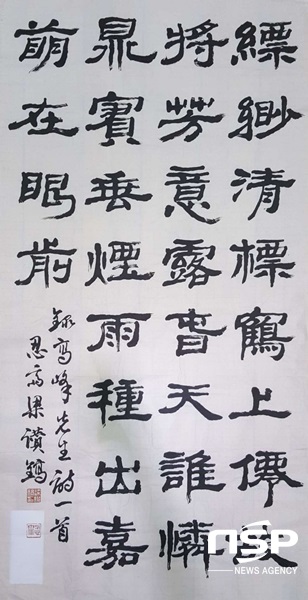 縹緲清標鶴上僊
將芳意露旾天誰憐
鼎實垂煙雨種出嘉
萌在眼前
錄高峰先生詩一首
梁讚
NSP
NEWS AGENCY